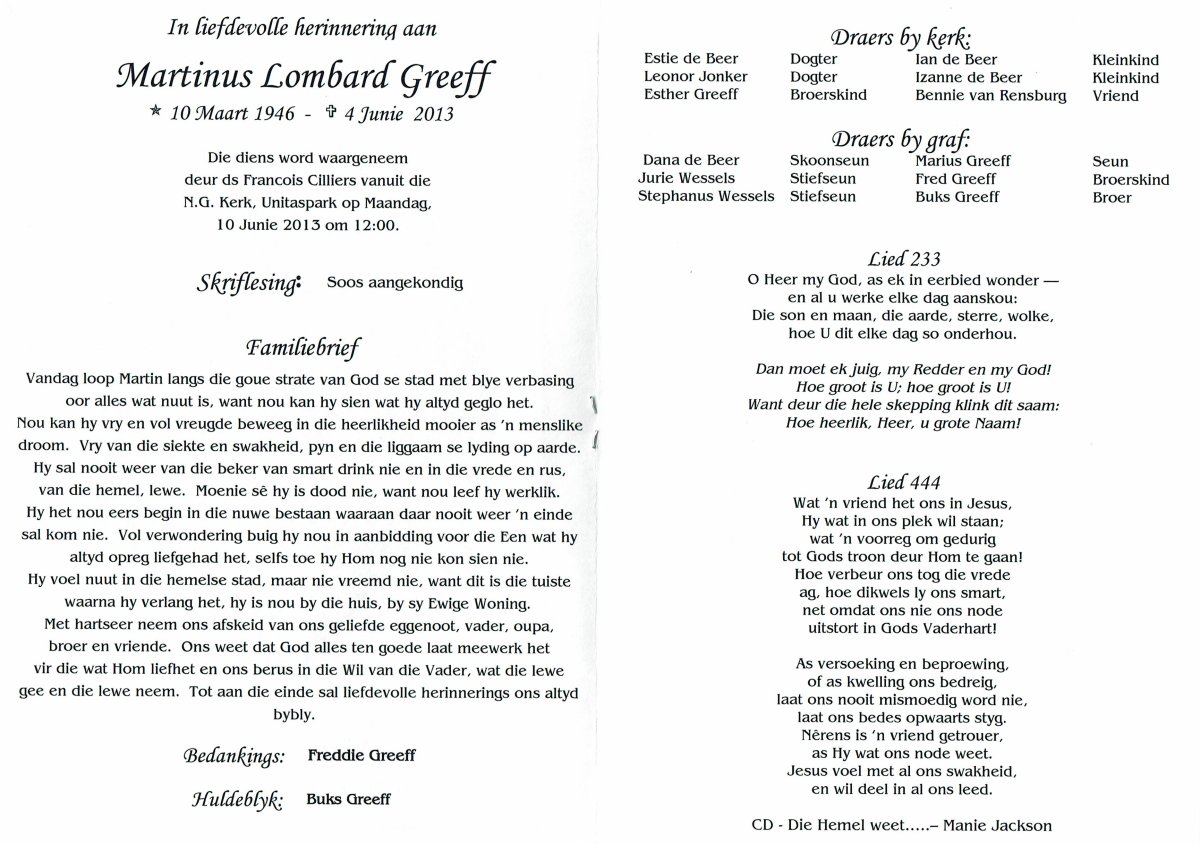 In liefdevolle herinnering aan
Martinus Lombard Greeff
✯ 10 Maart 1946 - ✞ 4 Junie 2013
Die diens word waargeneem
deur ds Francois Cilliers vanuit die
N.G. Kerk, Unitaspark op Maandag,
10 Junie 2013 om 12:00.
Skriflesing: Soos aangekondig
Familiebrief
Vandag loop Martin langs die goue strate van God se stad met blye verbasing
oor alles wat nuut is, want nou kan hy sien wat hy altyd geglo het.
Nou kan hy vry en vol vreugde beweeg in die heerlikheid mooier as 'n menslike
droom. Vry van die siekte en swakheid, pyn en die liggaam se lyding op aarde.
Hy sal nooit weer van die beker van smart drink nie en in die vrede en rus,
van die hemel, lewe. Moenie sê hy is dood nie, want nou leef hy werklik.
Hy het nou eers begin in die nuwe bestaan waaraan daar nooit weer 'n einde
sal kom nie. Vol verwondering buig hy nou in aanbidding voor die Een wat hy
altyd opreg liefgehad het, selfs toe hy Hom nog nie kon sien nie.
Hy voel nuut in die hemelse stad, maar nie vreemd nie, want dit is die tuiste
waarna hy verlang het, hy is nou by die huis, by sy Ewige Woning.
Met hartseer neem ons afskeid van ons geliefde eggenoot, vader, oupa,
broer en vriende. Ons weet dat God alles ten goede laat meewerk het
vir die wat Hom liefhet en ons berus in die Wil van die Vader, wat die lewe
gee en die lewe neem. Tot aan die einde sal liefdevolle herinnerings ons altyd
bybly.
Bedankings: Freddie Greeff
Huldeblyk: Buks Greeff
Draers by kerk:
Estie de Beer Dogter Ian de Beer Kleinkind
Leonor Jonker Dogter Izanne de Beer Kleinkind
Esther Greeff Broerskind Bennie van Rensburg Vriend
Draers by graf:
Dana de Beer Skoonseun Marius Greeff Seun
Jurie Wessels Stiefseun Fred Greeff Broerskind
Stephanus Wessels Stiefseun Buks Greeff Broer
Lied 233
O Heer my God, as ek in eerbied wonder —
en al u werke elke dag aanskou:
Die son en maan, die aarde, sterre, wolke,
hoe U dit elke dag so onderhou.
Dan moet ek juig, my Redder en my God!
Hoe groot is U; hoe groot is U!
Want deur die hele skepping klink dit saam:
Hoe heerlik, Heer, u grote Naam!
Lied 444
Wat 'n vriend het ons in Jesus,
Hy wat in ons plek wil staan;
wat 'n voorreg om gedurig
tot Gods troon deur Hom te gaan!
Hoe verbeur ons tog die vrede
ag, hoe dikwels ly ons smart,
net omdat ons nie ons node
uitstort in Gods Vaderhart!
As versoeking en beproewing,
of as kwelling ons bedreig,
laat ons nooit mismoedig word nie,
laat ons bedes opwaarts styg.
Nêrens is 'n vriend getrouer,
as Hy wat ons node weet.
Jesus voel met al ons swakheid,
en wil deel in al ons leed.
CD - Die Hemel weet.....– Manie Jackson